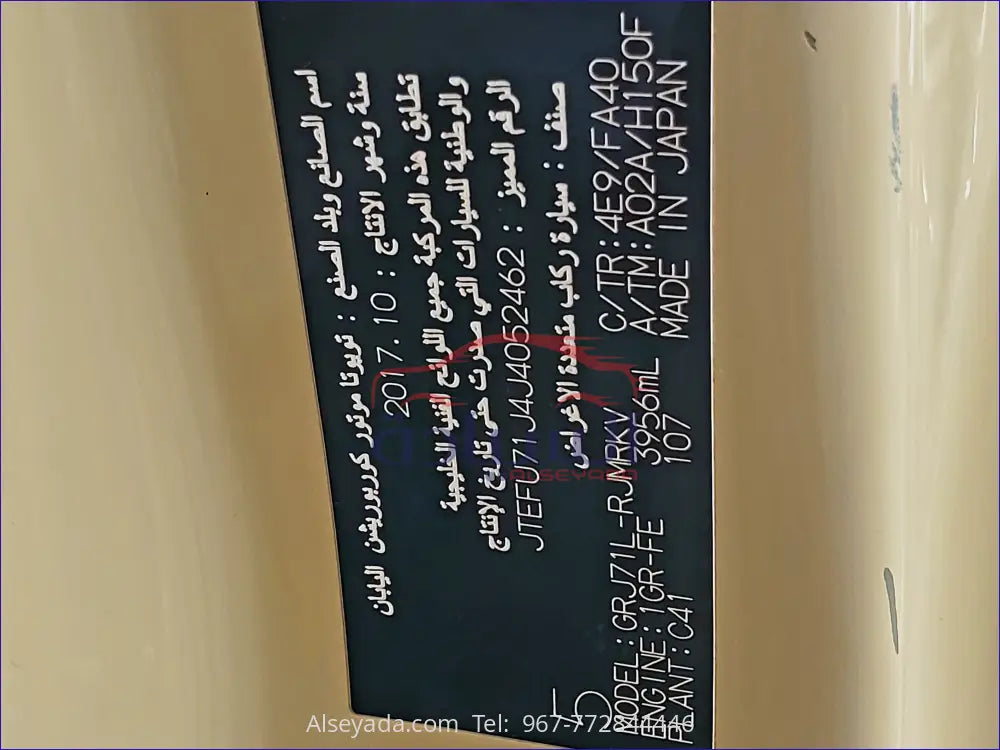 اسم الصانع وبلد الصنع : تويوتا موتور كوربوريشن اليابان
سنة وشهر الانتاج : 2017.10
تطابق هذه المركبة جميع اللوائح الفنية الخليجية
والوطنية للسيارات التي صدرت حتى تاريخ الإنتاج
الرقم المميز : JTEFU71J4J4052462
صنف : سيارة ركاب متعددة الاغراض
5
MODEL:GRJ71L-RJMRKV C/TR:4E9/FA40
ENGINE:1GR-FE 3956mL A/TM:A02A/H150F
PLANT:C41 107 MADE IN JAPAN
السيادة
ALSEYADA
Alseyada.com Tel: 967-772841446